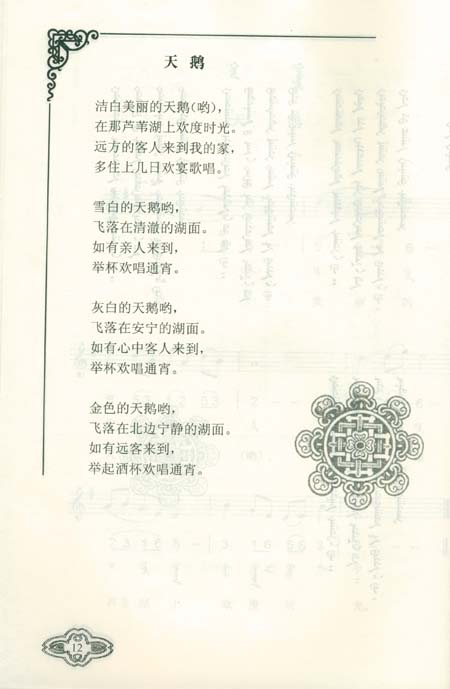 天鹅
洁白美丽的天鹅(哟),
在那芦苇湖上欢度时光。
远方的客人来到我的家,
多住上几日欢宴歌唱。
雪白的天鹅哟,
飞落在清澈的湖面。
如有亲人来到,
举杯欢唱通宵。
灰白的天鹅哟,
飞落在安宁的湖面。
如有心中客人来到,
举杯欢唱通宵。
金色的天鹅哟,
飞落在北边宁静的湖面。
如有远客来到,
举起酒杯欢唱通宵。
12